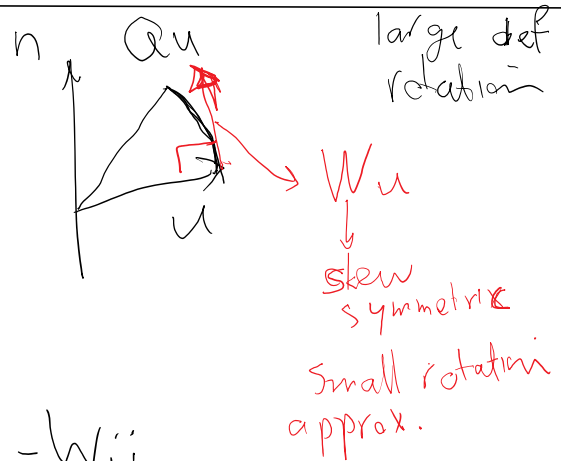 n
Qu
large def
rotation
u
Wu
skew
symmetric
Small rotation
approx.
-Wij